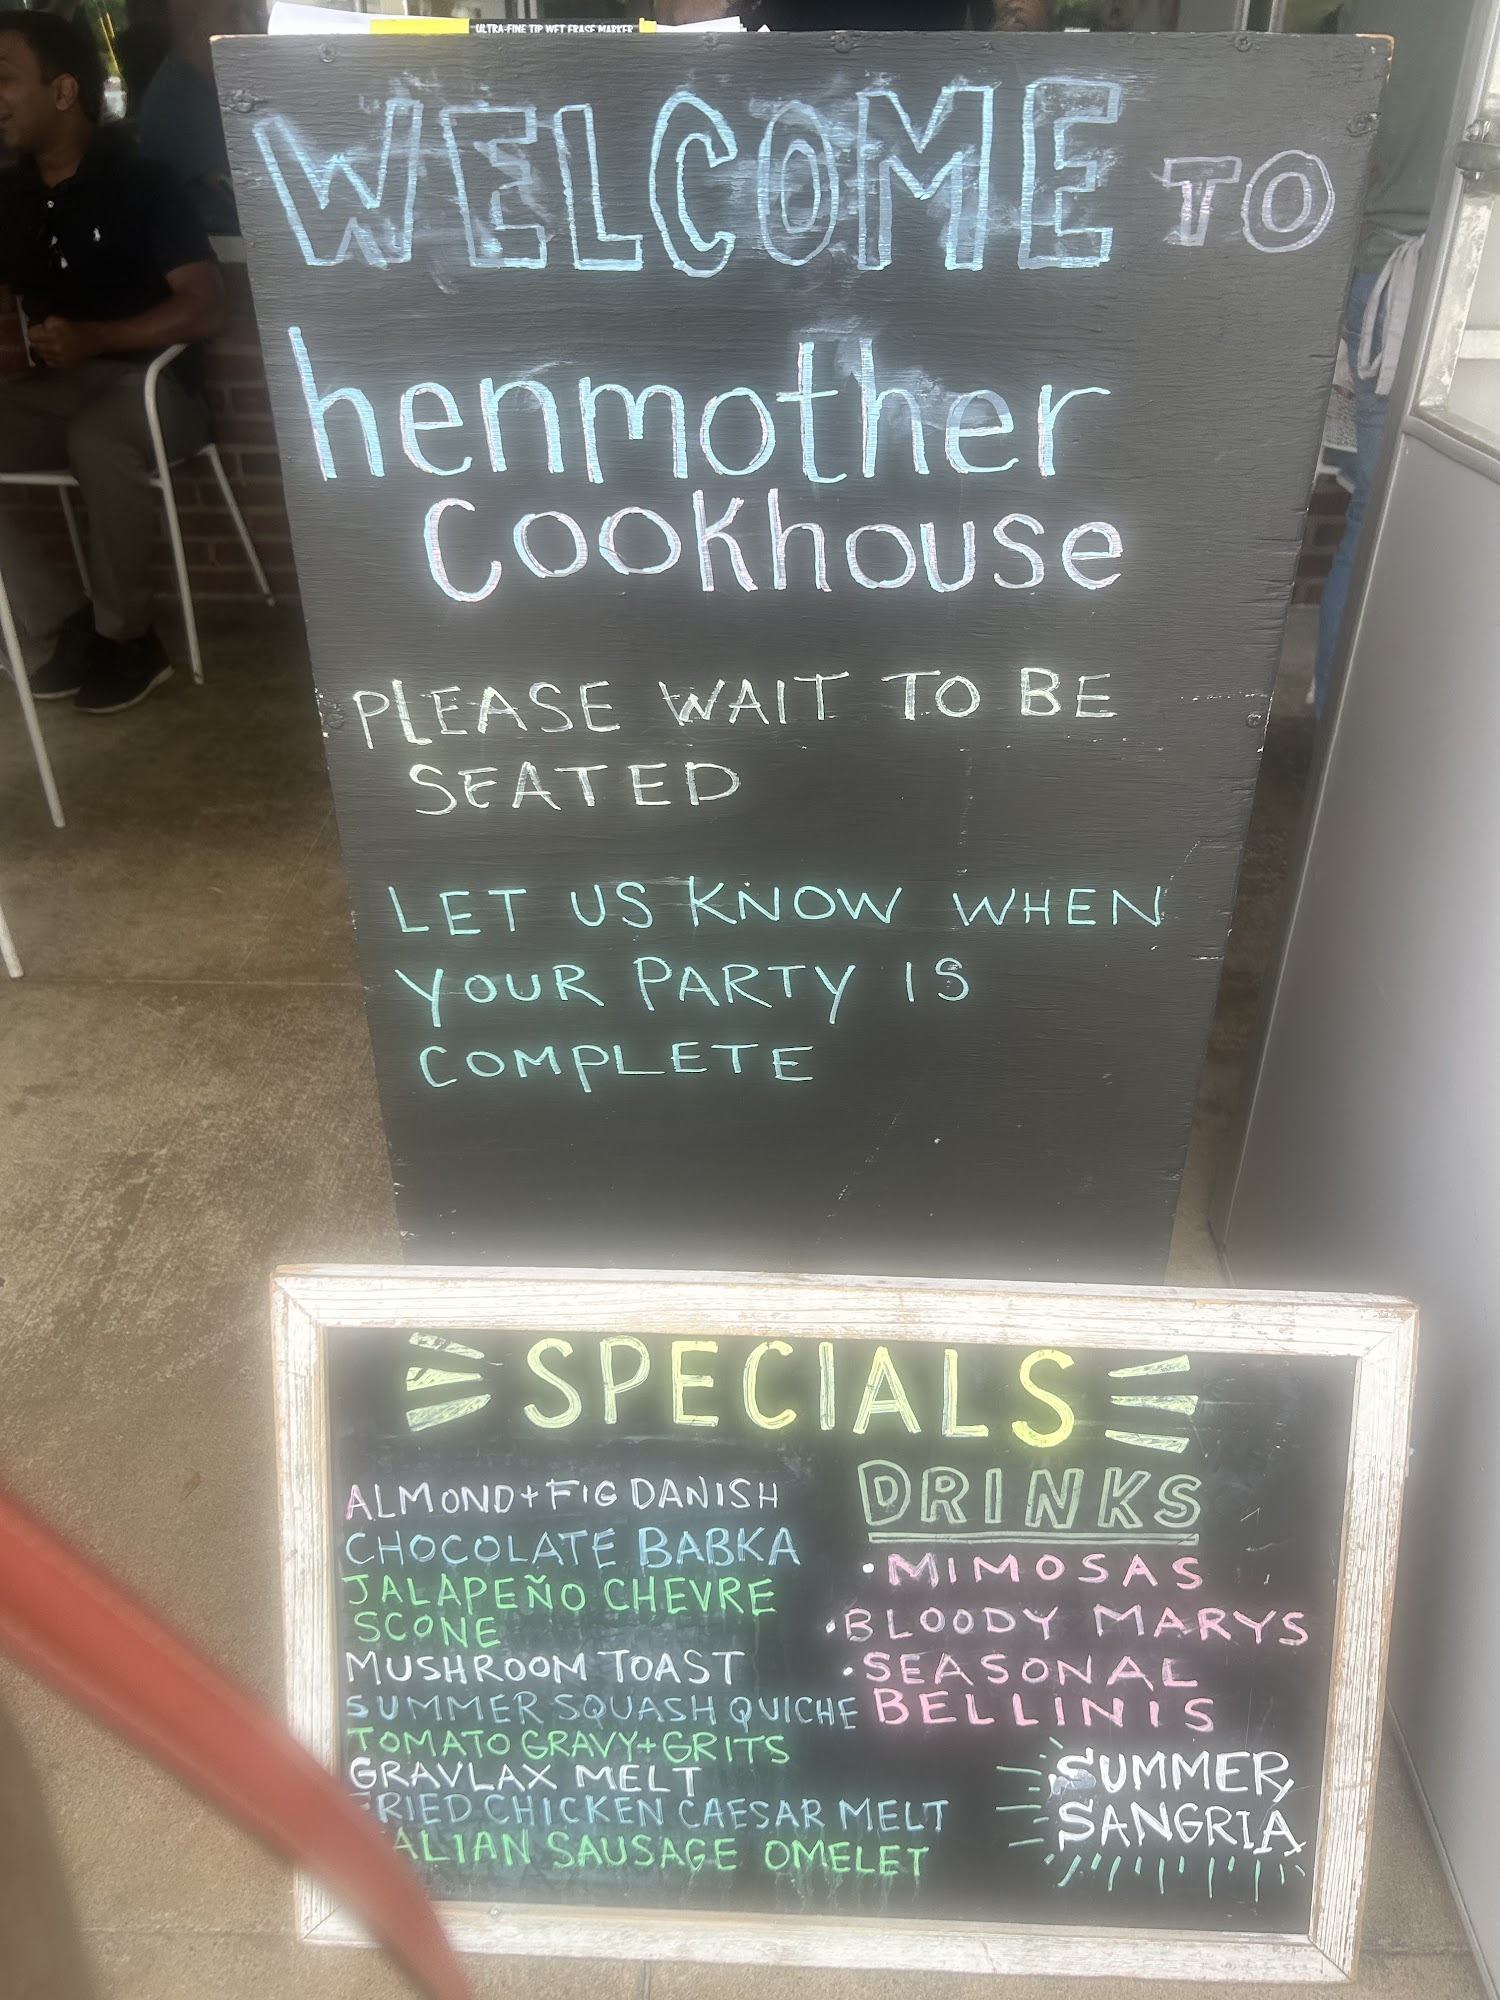 ULTRA-FINE TIP WET ERASE MARKER
WELCOME TO
henmother
Cookhouse
PLEASE WAIT TO BE
SEATED
LET US KNOW WHEN
YOUR PARTY IS
COMPLETE
SPECIALS
ALMOND+FIG DANISH
CHOCOLATE BABKA
JALAPEÑO CHEVRE
SCONE
MUSHROOM TOAST
SUMMER SQUASH QUICHE
TOMATO GRAVY+GRITS
GRAVLAX MELT
FRIED CHICKEN CAESAR MELT
ALIAN SAUSAGE OMELET
DRINKS
•MIMOSAS
•BLOODY MARYS
•SEASONAL
BELLINIS
SUMMER
SANGRIA